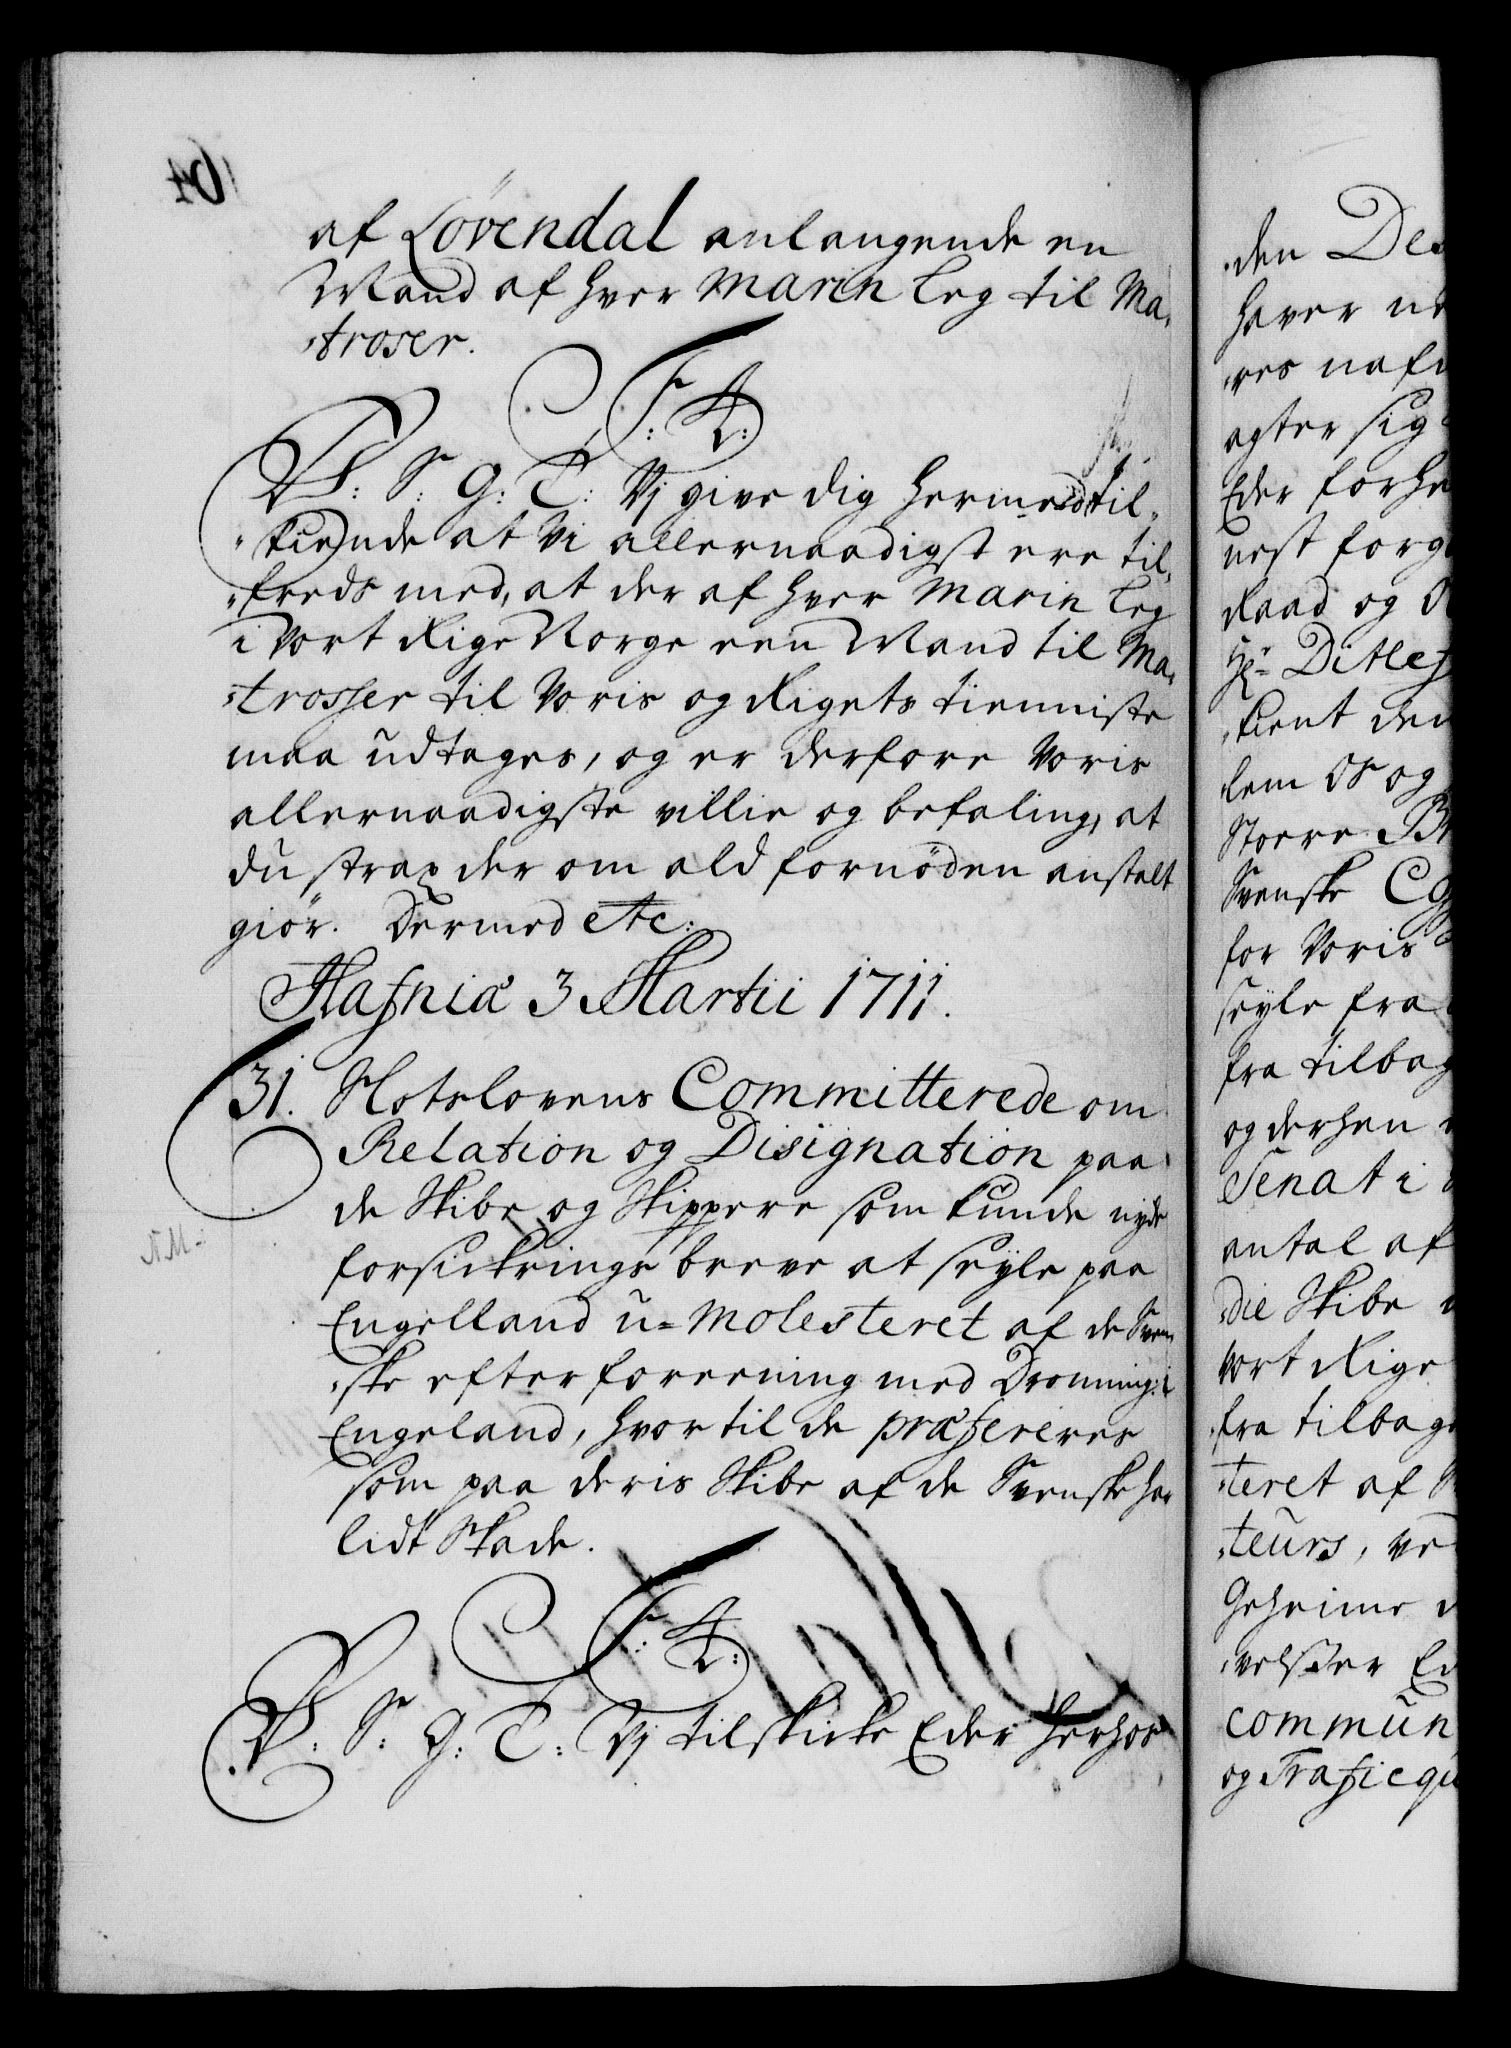 af Løvendal anlangende en
Mand af hver Marin leg til Ma-
-troser.
F: 4:
V: S: G: T: Vj give dig hermed til-
-kiende at Vi allernaadigst ere til-
-freds med, at der af hver Marin leg
i Vort Rige Norge een Mand til Ma-
-trosser til Voris og Rigets tienniste
maa udtages, og er derfore Voris
allernaadigste villie og befaling, at
du strax der om ald fornøden anstalt
giør. Dermed etc:
Hafniæ 3 Martii 1711.
31. Slotslovens Committerede om
Relation og Disignation paa
de Skibe og Skippere som kunde nyde
forsickrings breve at seyle paa
Engelland u-molesteret af de Sven-
-ske efter foreening med Dronning: i
Engeland, hvortil de præfereres
som paa deris Skibe af de Svenske har
lidt Skade.
F: 4:
V: S: G: T: Vj tilskicke Eder herhos
N.M.
64
den Des
haver
-res
agter sig
Eder forhe
nest forg
Raad og
Hr Ditlef
-kient den
-lem Os og
Stoere
Svenske
for Voris
seyle fra
fra tilbag
og derhen
Senat i
antal af
-die Skibe
vort Rige
fra tilbage
-teret af
-teurs, ve
Geheime
-velser
commun
og Traficqu